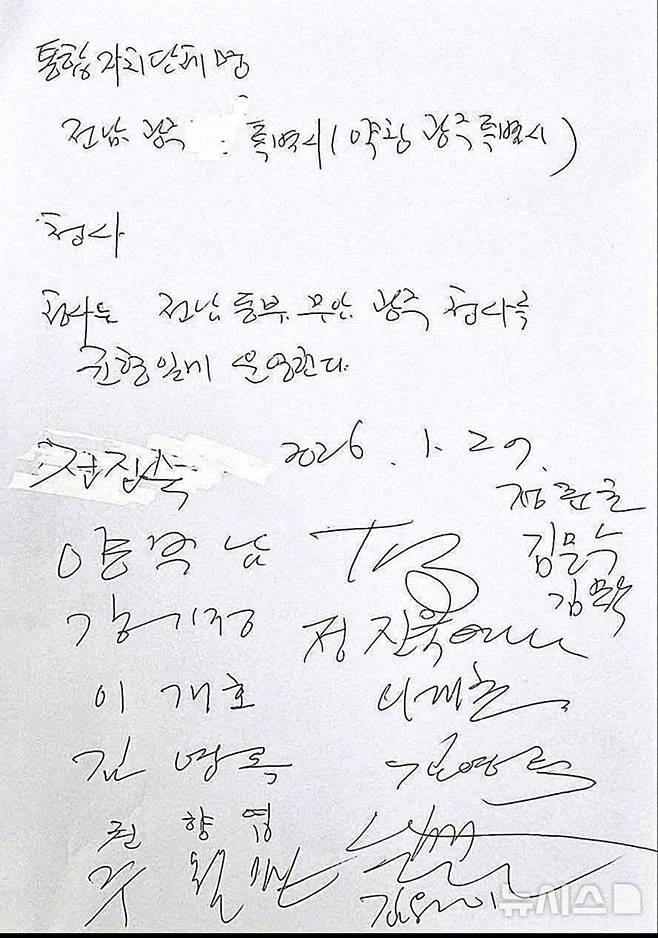 통합자치단체 명
전남 광주 특별시 (약칭 광주특별시)
청사
청사는 전남 동부 무안 광주 청사를
균형있게 운영한다.
2026. 1. 27.
전진숙
정준호
양부남
김문수
김문수
강기정
정진욱
이개호
이개호
김영록
김영록
권향엽
주철현
뉴시스